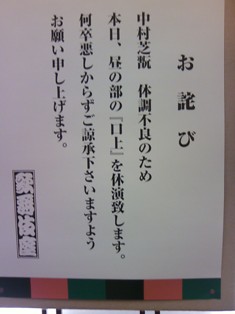 お詫び
中村芝翫　体調不良のため
本日、昼の部の『口上』を休演致します。
何卒悪しからずご諒承下さいますよう
お願い申し上げます。
歌舞伎座